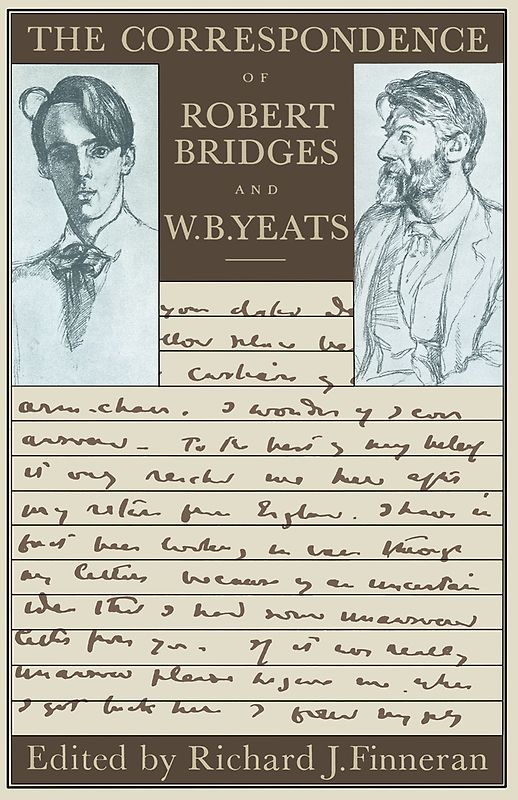 THE CORRESPONDENCE
OF
ROBERT
BRIDGES
AND
W.B.YEATS
you
arm-chair. I wonder if I ever
answered – To the best of my belief
it only reached me here after
my return from England. I have in
fact been looking in vain through
my letters because of an uncertain
idea that I had some unanswered
letter from you. If it was really
unanswered please forgive me. When
I got back here I found my self
Edited by Richard J.Finneran